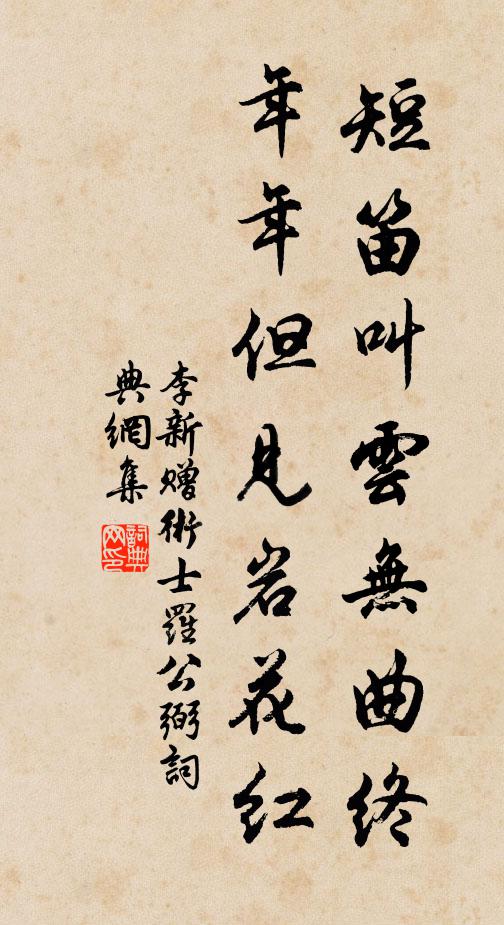 短笛叫雲無曲終
年年但見岩花紅
李新贈術士羅公弼詞
典網集
詞典
网印